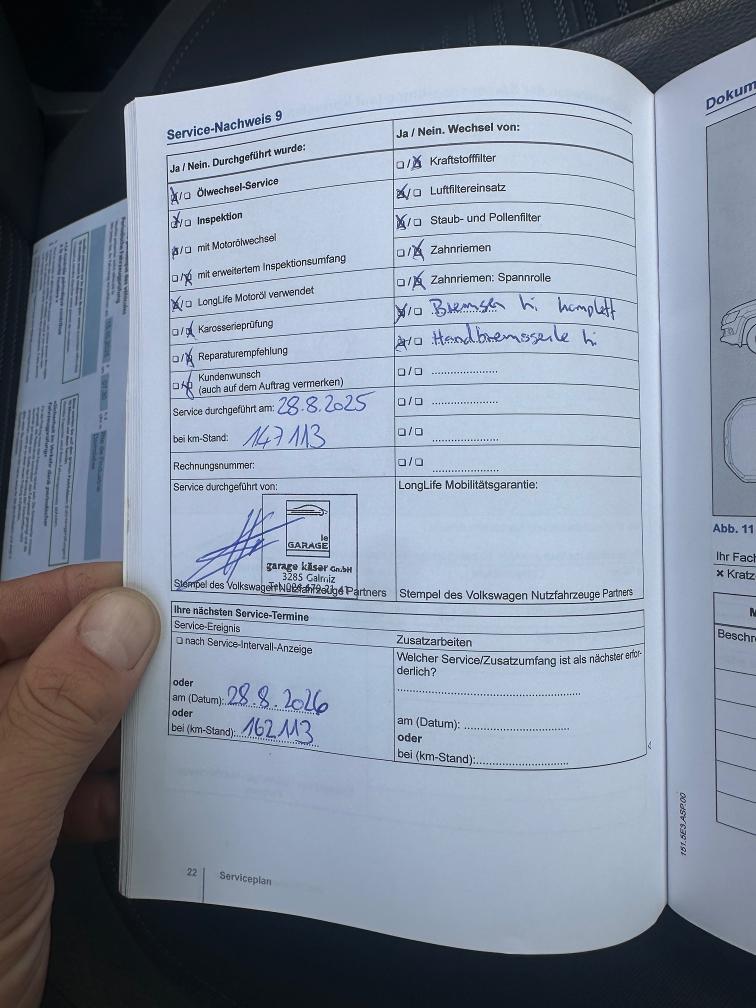 Service-Nachweis 9
Ja / Nein. Durchgeführt wurde:
☒/☐ Ölwechsel-Service
☒/☐ Inspektion
☒/☐ mit Motorölwechsel
☐/☒ mit erweitertem Inspektionsumfang
☒/☐ LongLife Motoröl verwendet
☐/☒ Karosserieprüfung
☐/☒ Reparaturempfehlung
☐/☒ Kundenwunsch
(auch auf dem Auftrag vermerken)
Service durchgeführt am: 28.8.2025
bei km-Stand: 147113
Rechnungsnummer:
Service durchgeführt von:
le
GARAGE
garage käser GmbH
3285 Galmiz
Stempel des Volkswagen Nutzfahrzeuge Partners
Ja / Nein. Wechsel von:
☐/☒ Kraftstofffilter
☒/☐ Luftfiltereinsatz
☒/☐ Staub- und Pollenfilter
☐/☒ Zahnriemen
☐/☒ Zahnriemen: Spannrolle
☒/☐ Bremsen hi. komplett
☒/☐ Handbremsseile hi.
☐/☐ ....................
☐/☐ ....................
☐/☐ ....................
☐/☐ ....................
LongLife Mobilitätsgarantie:
Stempel des Volkswagen Nutzfahrzeuge Partners
Ihre nächsten Service-Termine
Service-Ereignis
☐ nach Service-Intervall-Anzeige
oder
am (Datum): 28.8.2026
oder
bei (km-Stand): 162113
Zusatzarbeiten
Welcher Service/Zusatzumfang ist als nächster erfor-
derlich?
am (Datum): ....................
oder
bei (km-Stand): ....................
22
Serviceplan
151.5E3.ASP.00
Dokum
Abb. 11
Ihr Fach
× Kratz
Beschr